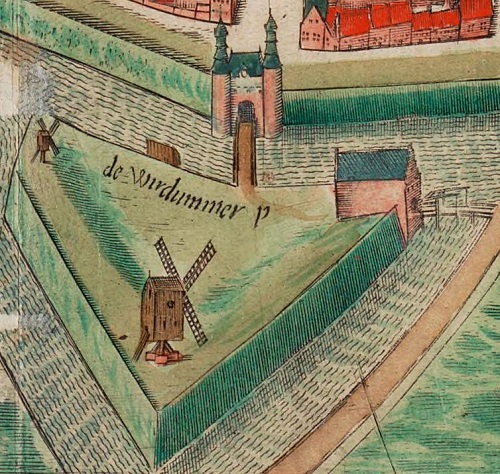 de Wirdummer p